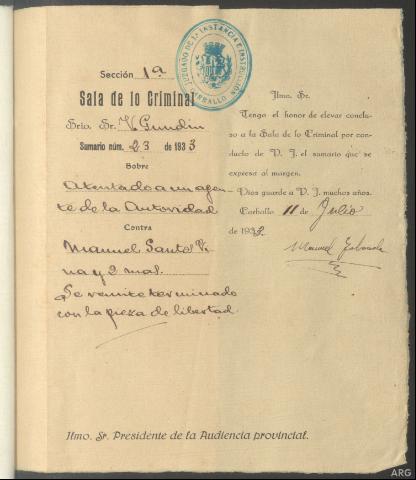 JUZGADO DE 1A INSTANCIA E INSTRUCCIÓN
CARBALLO
Sección 1ª
Sala de lo Criminal
Sría. Sr. V. Gundín
Sumario núm. 23 de 1933
Sobre
Atentado a un agen-
te de la Autoridad
Contra
Manuel Santos Vi-
na y 2 mas.
Se remite terminado
con la pieza de libertad
Ilmo. Sr.
Tengo el honor de elevar conclu-
so a la Sala de lo Criminal por con-
ducto de V. I. el sumario que se
expresa al margen.
Dios guarde a V. I. muchos años.
Carballo 11 de Julio
de 1933.
Manuel
Ilmo. Sr. Presidente de la Audiencia provincial.
ARG